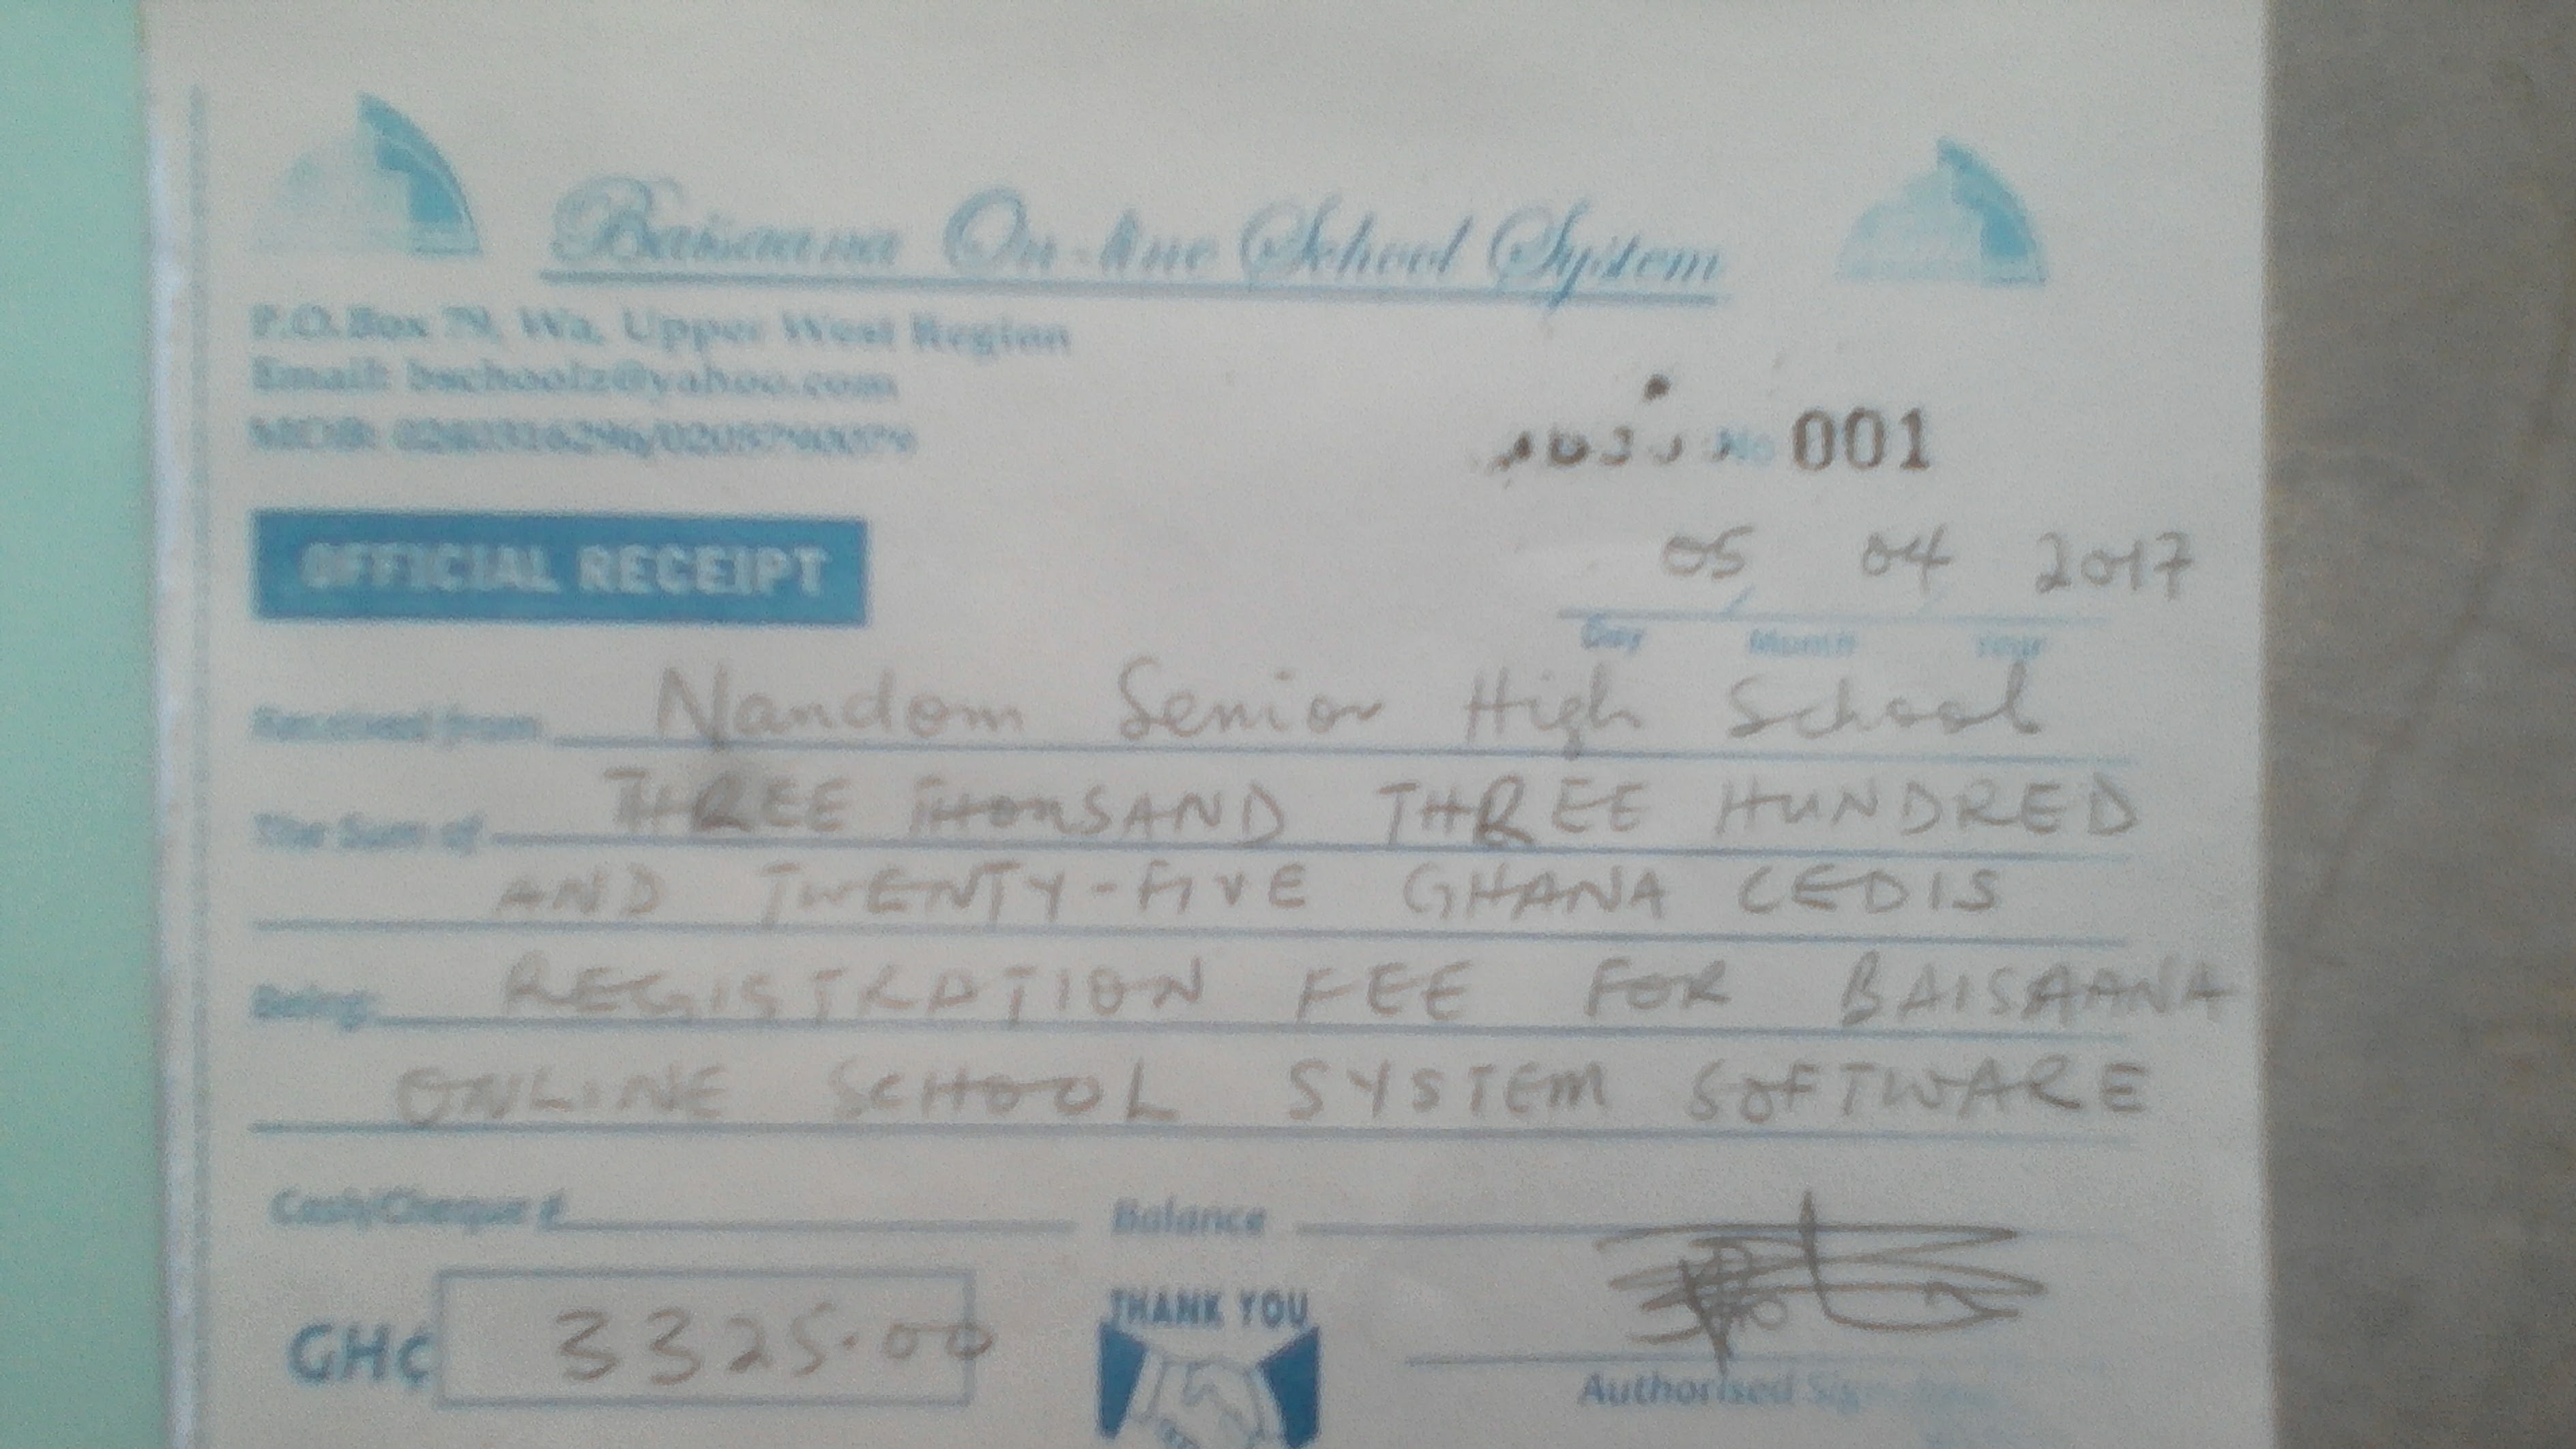 Baisaana On-line School System
P.O.Box 79, Wa, Upper West Region
Email: bschoolz@yahoo.com
MOB:
No 001
05 04 2017
Day Month Year
OFFICIAL RECEIPT
Received from Nandom Senior High School
The Sum of THREE THOUSAND THREE HUNDRED
AND TWENTY-FIVE GHANA CEDIS
Being: REGISTRATION FEE FOR BAISAANA
ONLINE SCHOOL SYSTEM SOFTWARE
Cash/Cheque # Balance
GH¢ 3325.00
THANK YOU
Authorised